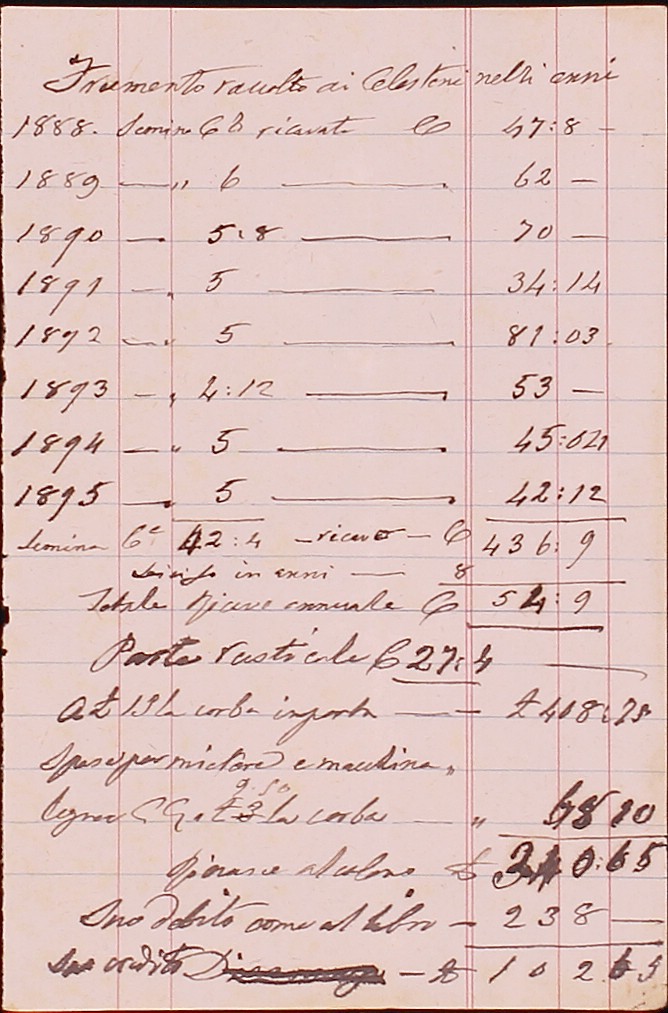 Frumento raccolto ai Celestini nelli anni
1888. Semina C 6 ricavato C 47:8 –
1889 — " 6 — 62 –
1890 — 5:8 — 70 –
1891 — " 5 — 34:14
1892 — " 5 — 81:03
1893 — " 4:12 — 53 –
1894 — " 5 — 45:04
1895 — 5 — 42:12
Semina Ce 42:4 – ricavo – C 436:9
in anni — 8
Totale ricavo annuale C 54:9
Parte rusticale C 27:4
A £ 15 la corba importa — £ 408:75
Spese per mietere e macchina "
2.50
£ 3 la corba — " 68 10
al colono £ 340:65
Suo debito come al libro – 238 —
Suo credito – £ 102 65